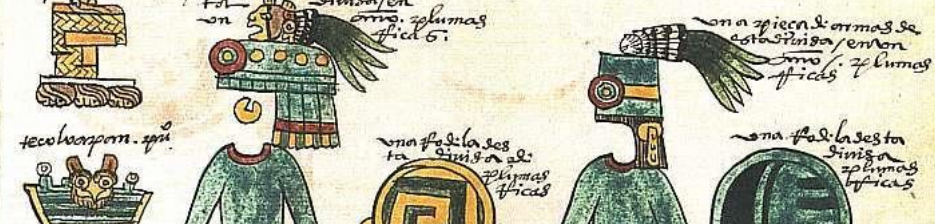 ta
un
divisa / en
año. plumas
Ricas.
una pieca de armas de
esta divisa / en un
año /. plumas
Ricas
tecoloapan. puo
una Rodela des
ta divisa de
plumas
Ricas
una Rodela desta
divisa
plumas
Ricas